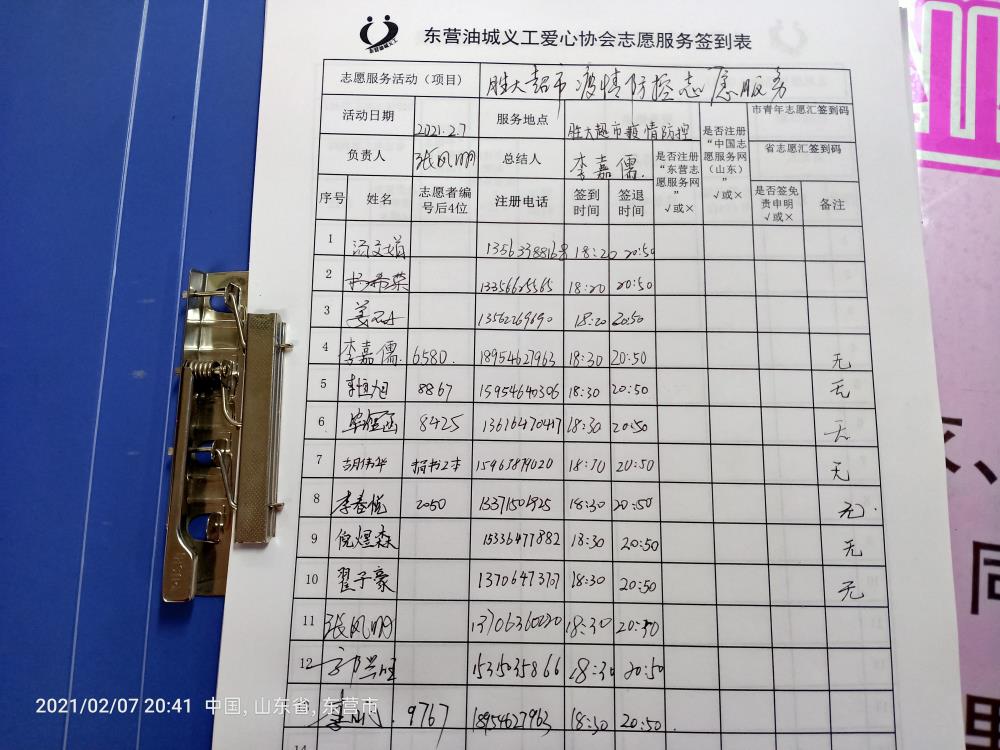 东营义工
东营油城义工爱心协会志愿服务签到表
志愿服务活动（项目） 胜大超市疫情防控志愿服务
活动日期 2021.2.7 服务地点 胜大超市疫情防控 是否注册“中国志愿服务网（山东）”√或× 市青年志愿汇签到码
负责人 张凤明 总结人 李嘉儒 是否注册“东营志愿服务网”√或× 省志愿汇签到码
序号 姓名 志愿者编号后4位 注册电话 签到时间 签退时间 是否签免责申明√或× 备注
1 18:20 20:50
2 13356625565 18:20 20:50
3 18:20 20:50
4 李嘉儒 6580. 18954627963 18:30 20:50 无
5 8867 15954640306 18:30 20:50 无
6 8425 18:30 20:50 无
7 胡伟华 捐书2本 15963879020 18:30 20:50 无
8 李春悦 2050 18:30 20:50 无
9 倪煜森 15336477882 18:30 20:50 无
10 翟子豪 13706473707 18:30 20:50 无
11 张凤明 18:30 20:50
12 18:30 20:50
9767 18954627963 18:30 20:50
14
2021/02/07 20:41 中国, 山东省, 东营市
同